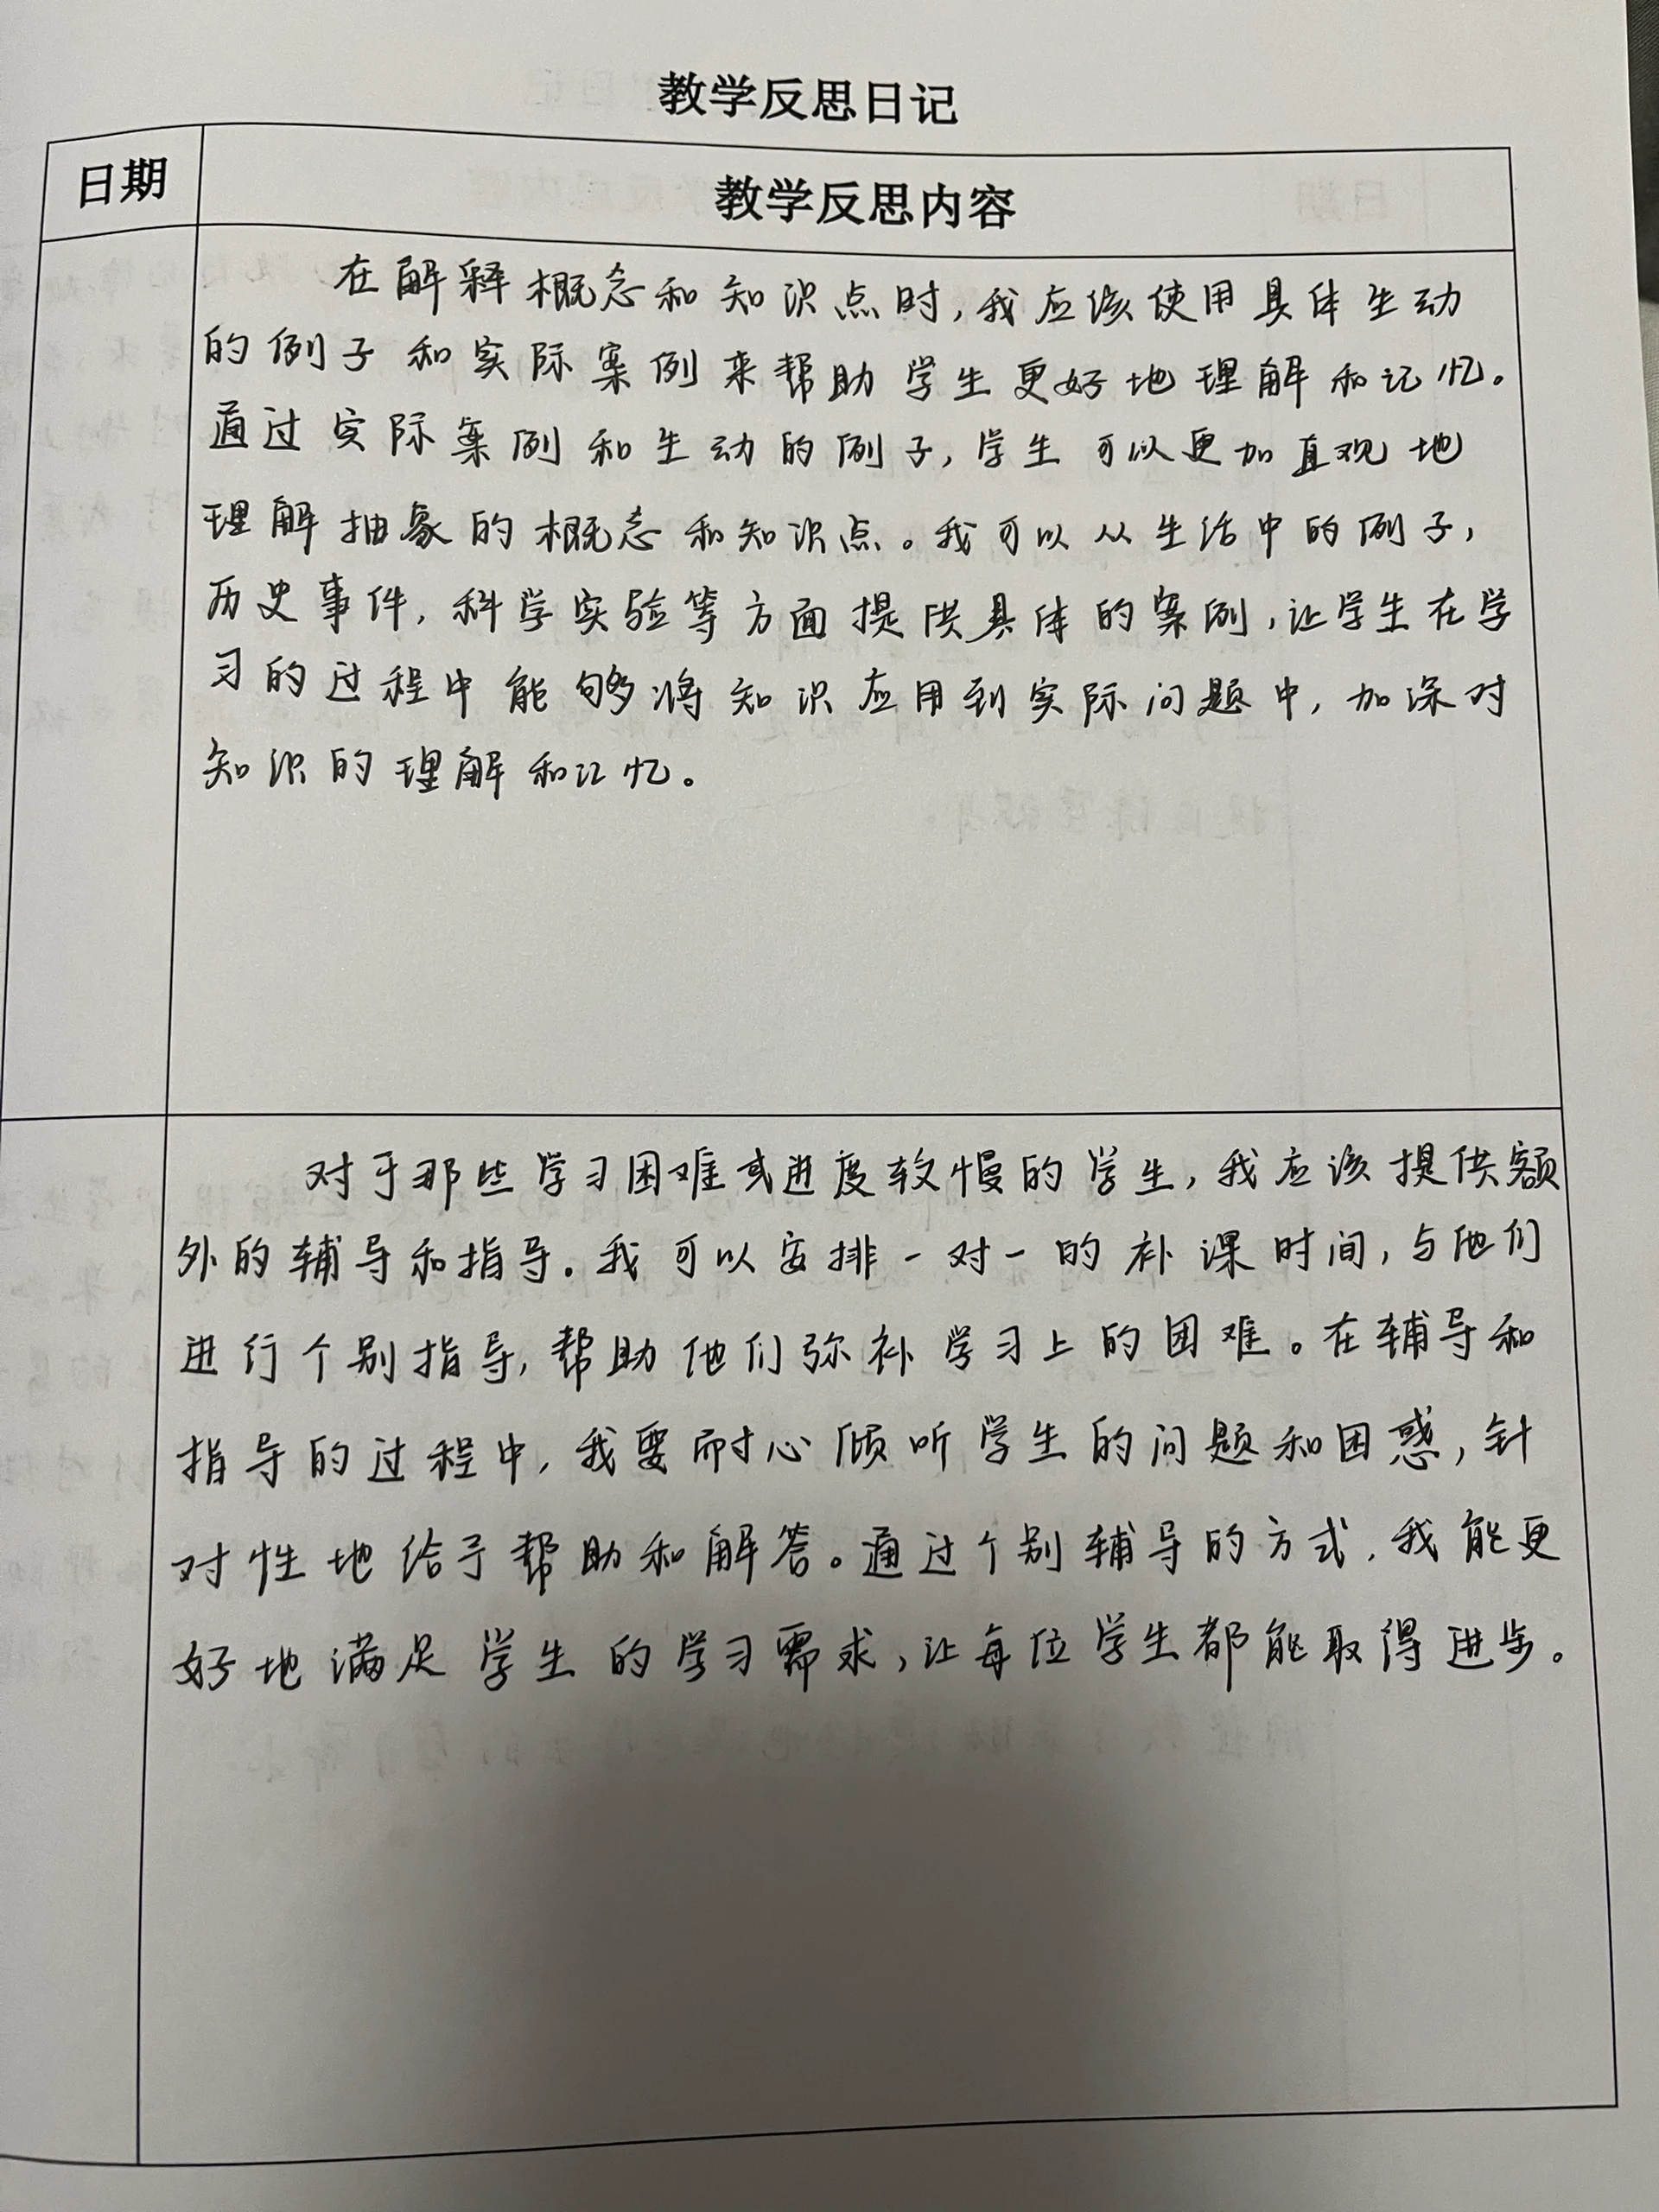 教学反思日记
日期
教学反思内容
在解释概念和知识点时,我应该使用具体生动
的例子和实际案例来帮助学生更好地理解和记忆。
通过实际案例和生动的例子,学生可以更加直观地
理解抽象的概念和知识点。我可以从生活中的例子,
历史事件,科学实验等方面提供具体的案例,让学生在学
习的过程中能够将知识应用到实际问题中,加深对
知识的理解和记忆。
对于那些学习困难或进度较慢的学生,我应该提供额
外的辅导和指导。我可以安排一对一的补课时间,与他们
进行个别指导,帮助他们弥补学习上的困难。在辅导和
指导的过程中,我要耐心倾听学生的问题和困惑,针
对性地给予帮助和解答。通过个别辅导的方式,我能更
好地满足学生的学习需求,让每位学生都能取得进步。